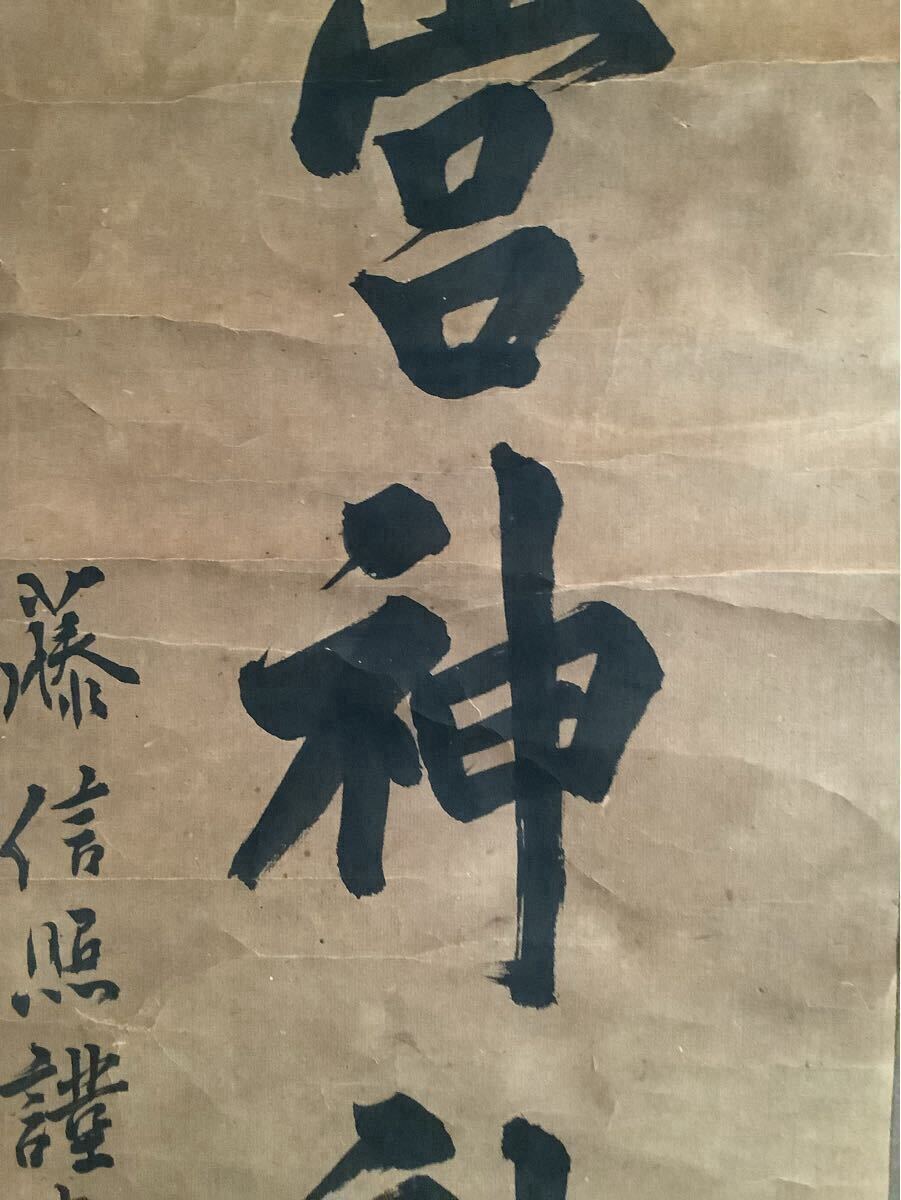 宮神
藤信照謹